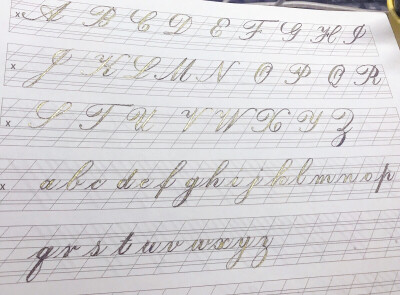 x A B C D E F G H I
x J K L M N O P Q R
x S T U V W X Y Z
x a b c d e f g h i j k l m n o p
q r s t u v w x y z